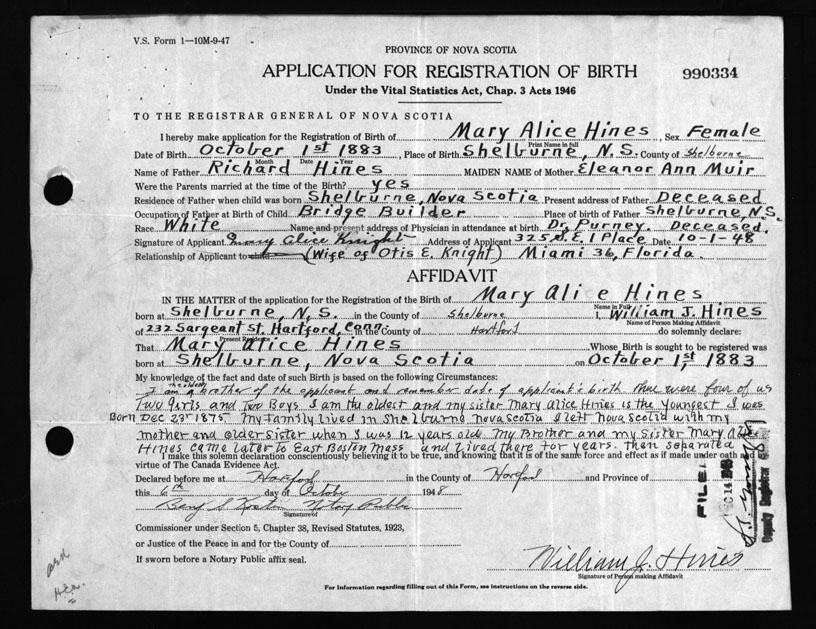 V.S. Form 1—10M-9-47
PROVINCE OF NOVA SCOTIA
APPLICATION FOR REGISTRATION OF BIRTH
990334
Under the Vital Statistics Act, Chap. 3 Acts 1946
TO THE REGISTRAR GENERAL OF NOVA SCOTIA
I hereby make application for the Registration of Birth of Mary Alice Hines, Sex Female
Print Name in full
Date of Birth October 1st 1883, Place of Birth Shelburne, N.S. County of Shelburne
Month Date Year
Name of Father Richard Hines MAIDEN NAME of Mother Eleanor Ann Muir
Were the Parents married at the time of the Birth? yes
Residence of Father when child was born Shelburne, Nova Scotia Present address of Father Deceased
Occupation of Father at Birth of Child Bridge Builder Place of birth of Father Shelburne, N.S.
Race White Name and present address of Physician in attendance at birth Dr. Purney. Deceased.
Signature of Applicant Mary Alice Knight Address of Applicant 325 S.E. 1 Place Date 10-1-48
Relationship of Applicant to child (Wife of Otis E. Knight) Miami 36, Florida.
AFFIDAVIT
IN THE MATTER of the application for the Registration of the Birth of Mary Alice Hines
Name in Full
born at Shelburne, N.S. in the County of Shelburne I, William J. Hines
Name of Person Making Affidavit
of 232 Sargeant St. Hartford, Conn in the County of Hartford do solemnly declare:
Present Residence
That Mary Alice Hines Whose Birth is sought to be registered was
born at Shelburne, Nova Scotia on October 1st, 1883
My knowledge of the fact and date of such Birth is based on the following Circumstances:
I am the oldest brother of the applicant and remember date of applicant's birth there were four of us
Two Girls and Two Boys I am the oldest and my sister Mary Alice Hines is the youngest I was
Born Dec 23rd 1875 My family lived in Shelburne Nova Scotia I left Nova Scotia with my
mother and older sister when I was 12 years old. My Brother and my Sister Mary Alice
Hines came later to East Boston Mass and lived there for years. then separated
I make this solemn declaration conscientiously believing it to be true, and knowing that it is of the same force and effect as if made under oath and by
virtue of The Canada Evidence Act.
Declared before me at Hartford in the County of Hartford and Province of
this 6th day of October 1948
Notary Public
Signature of
Commissioner under Section 5, Chapter 38, Revised Statutes, 1923,
or Justice of the Peace in and for the County of
If sworn before a Notary Public affix seal.
William J. Hines
Signature of Person making Affidavit
For Information regarding filling out of this Form, see instructions on the reverse side.
FILED